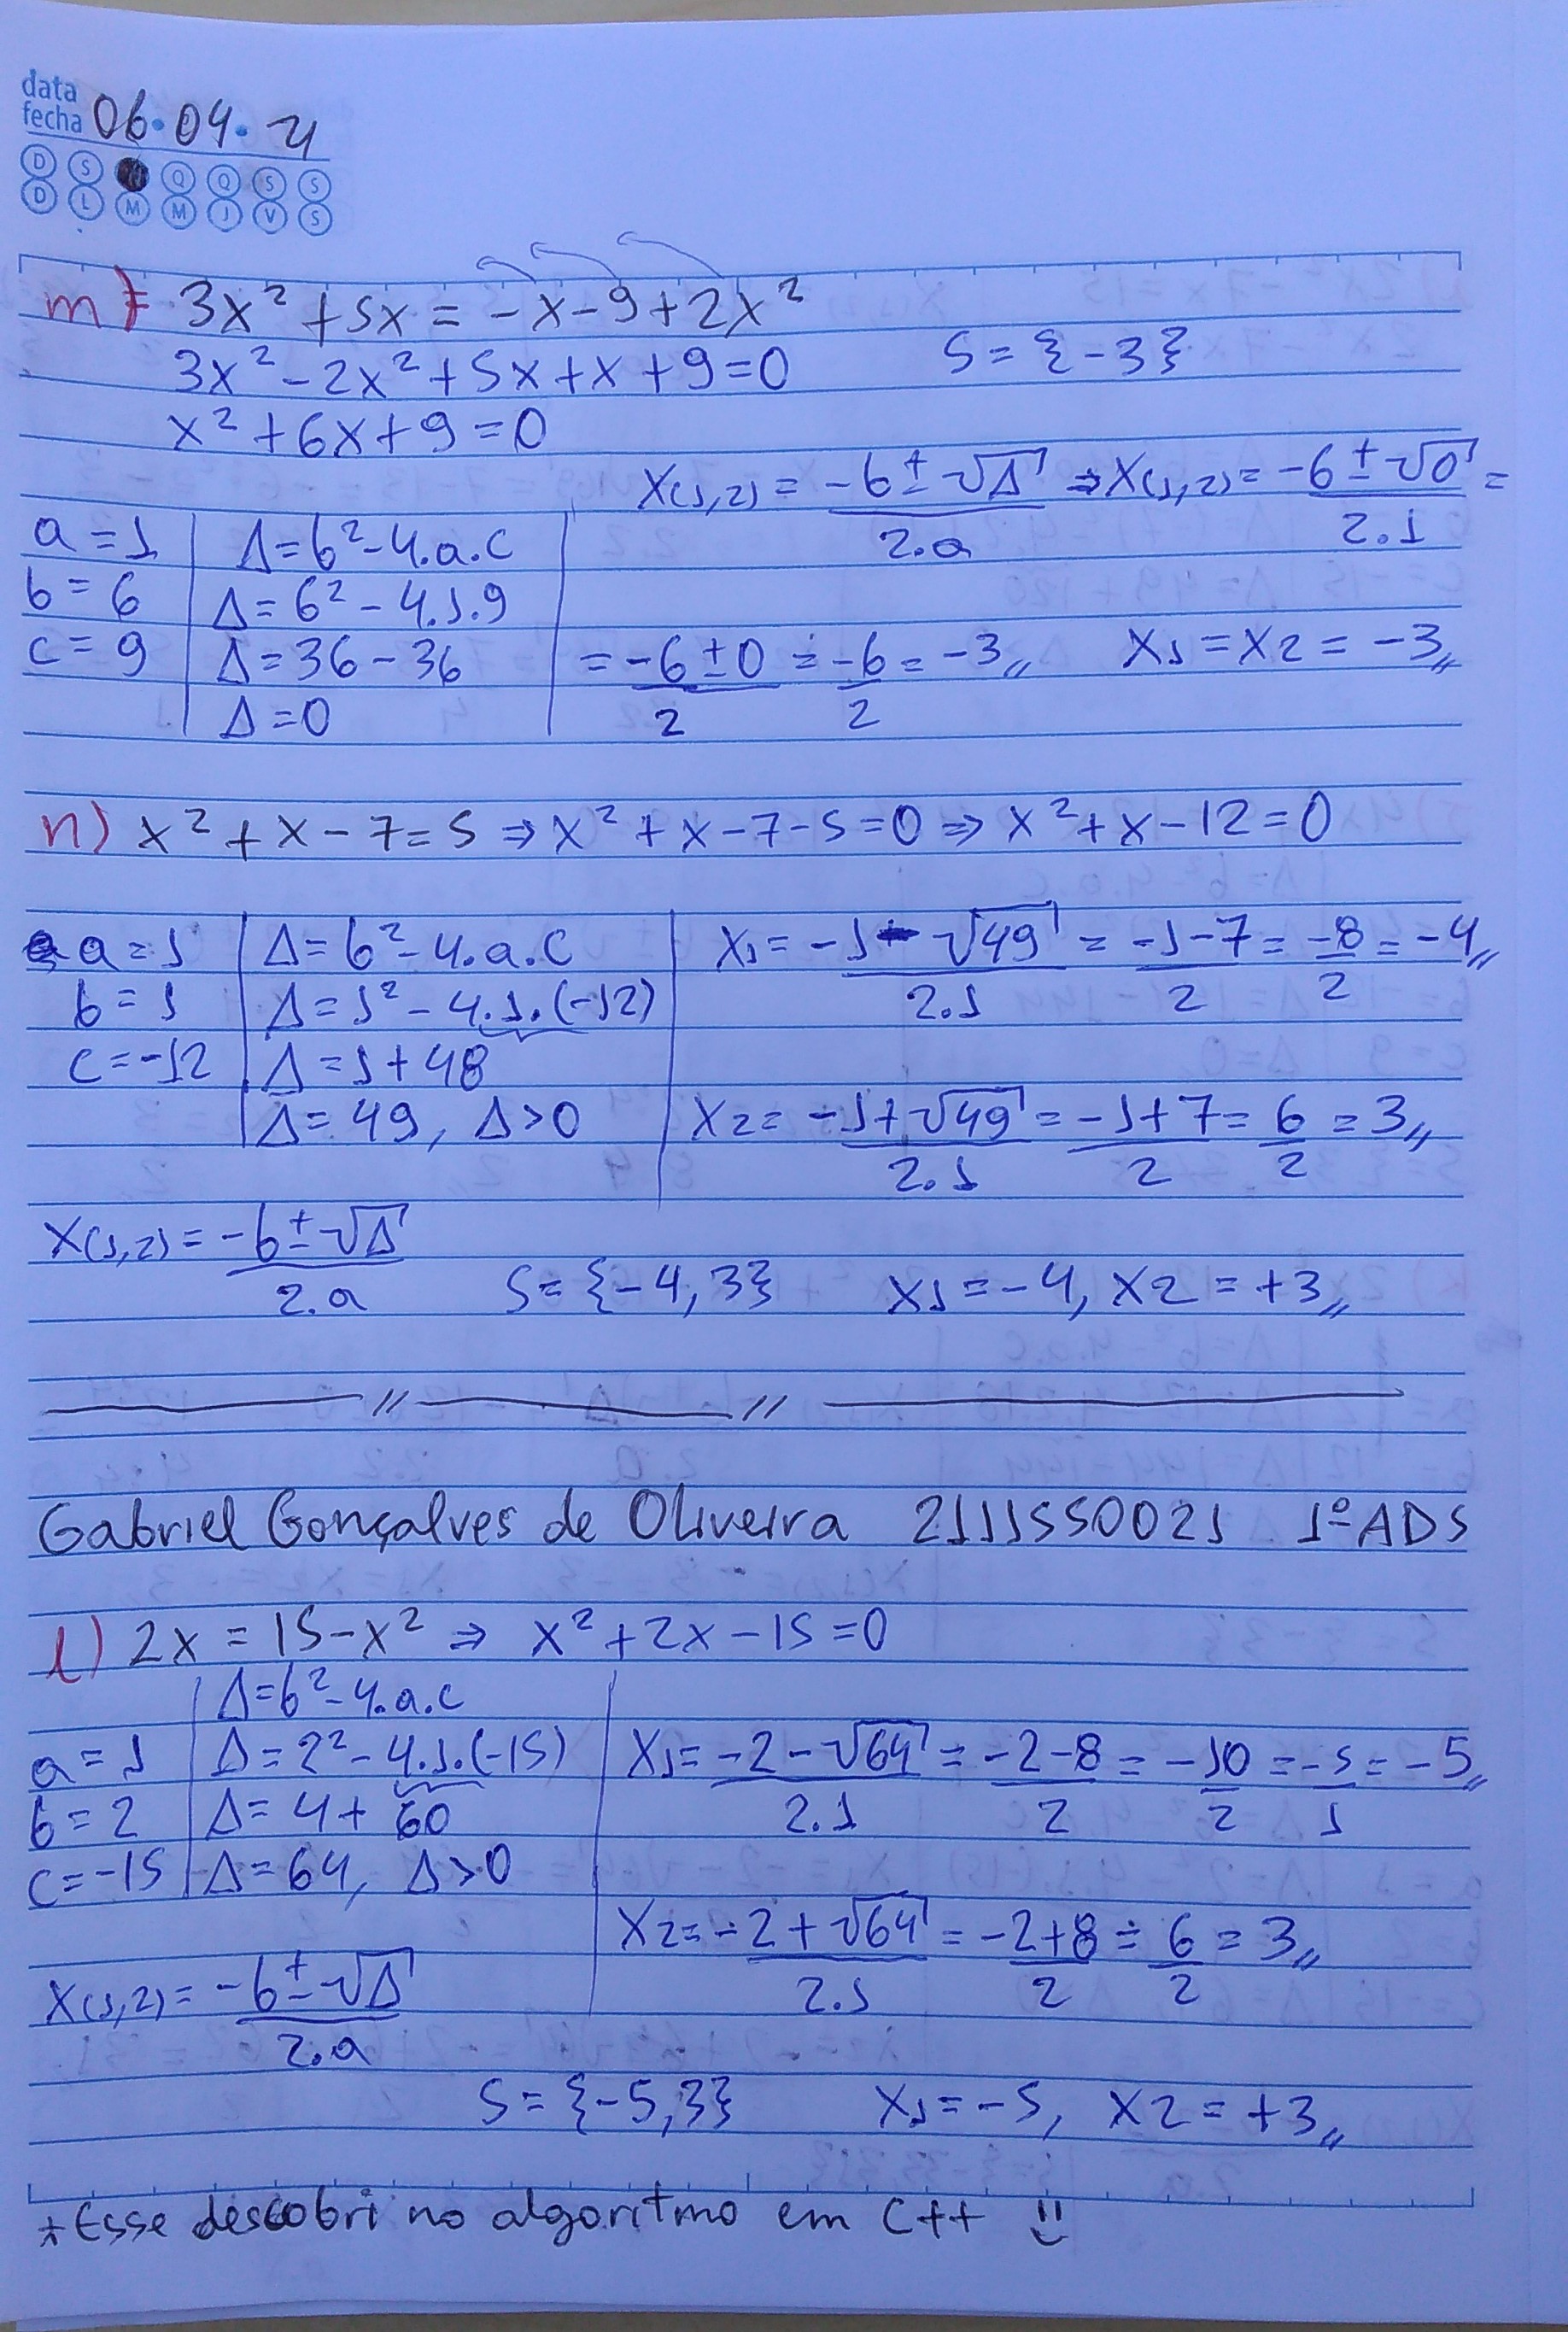 data
fecha 06.04.21
D S Q Q S S
D L M M J V S
m) 3x² + 5x = -x - 9 + 2x²
3x² - 2x² + 5x + x + 9 = 0 S = {-3}
x² + 6x + 9 = 0
x(1,2) = -b ± √Δ / 2.a ⇒ x(1,2) = -6 ± √0 / 2.1 =
a = 1 Δ = b² - 4.a.c
b = 6 Δ = 6² - 4.1.9
c = 9 Δ = 36 - 36 = -6 ± 0 / 2 = -6 / 2 = -3,, x1 = x2 = -3,,
Δ = 0
n) x² + x - 7 = 5 ⇒ x² + x - 7 - 5 = 0 ⇒ x² + x - 12 = 0
a = 1 Δ = b² - 4.a.c x1 = -1 - √49 / 2.1 = -1 - 7 / 2 = -8 / 2 = -4,,
b = 1 Δ = 1² - 4.1.(-12)
c = -12 Δ = 1 + 48
Δ = 49, Δ > 0 x2 = -1 + √49 / 2.1 = -1 + 7 / 2 = 6 / 2 = 3,,
x(1,2) = -b ± √Δ / 2.a
S = {-4, 3} x1 = -4, x2 = +3,,
// //
Gabriel Gonçalves de Oliveira 2111550021 1º ADS
l) 2x = 15 - x² ⇒ x² + 2x - 15 = 0
Δ = b² - 4.a.c
a = 1 Δ = 2² - 4.1.(-15) x1 = -2 - √64 / 2.1 = -2 - 8 / 2 = -10 / 2 = -5 / 1 = -5,,
b = 2 Δ = 4 + 60
c = -15 Δ = 64, Δ > 0
x2 = -2 + √64 / 2.1 = -2 + 8 / 2 = 6 / 2 = 3,,
x(1,2) = -b ± √Δ / 2.a
S = {-5, 3} x1 = -5, x2 = +3,,
*Esse descobri no algoritmo em C++ !!